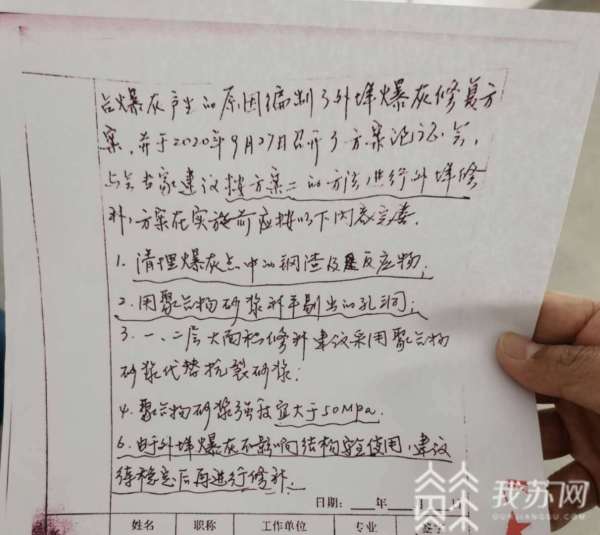 台爆灰产生的原因编制了外墙爆灰修复方
案,并于2020年9月27日召开了方案论证会,
与会专家建议按方案二的方法进行外墙修
补,方案在实施前应按以下内容完善.
1. 清理爆灰点中的钢渣及反应物;
2. 用聚合物砂浆补平剔出的孔洞;
3. 一、二层大面积修补建议采用聚合物
砂浆代替抗裂砂浆;
4. 聚合物砂浆强度宜大于50MPa.
6. 由于外墙爆灰不影响结构安全使用,建议
待稳定后再进行修补.
日期: 年 月
姓名 职称 工作单位 专业 签字
我苏网
OURJIANGSU.COM